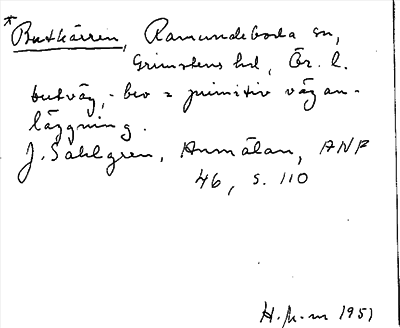 *Butkärren, Ramundeboda sn,
Grimstens hd, Ör. l.
butväg, - bro = primitiv vägan-
läggning.
J. Sahlgren, Anmälan, ANF
46, s. 110
H. 1951